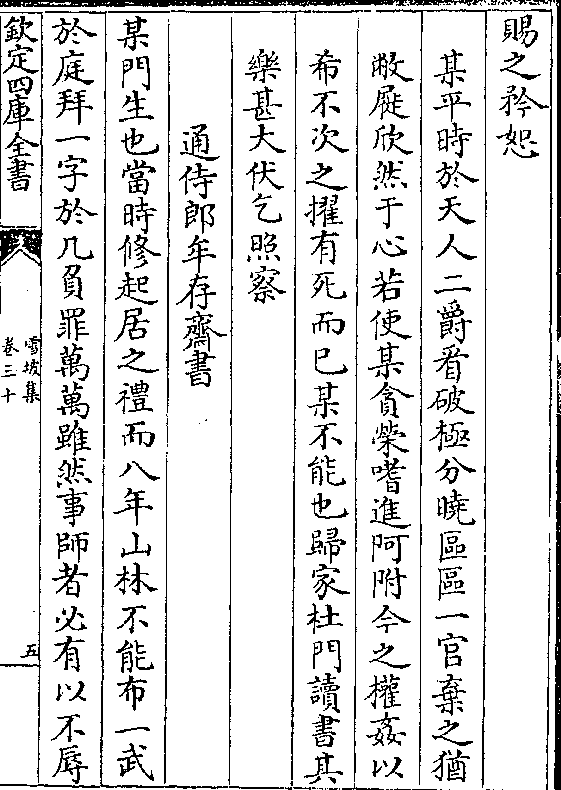 賜之矜恕
某平時於天人二爵看破極分曉區區一官棄之猶
敝屣欣然于心若使某貪榮嗜進阿附今之權姦以
希不次之擢有死而已某不能也歸家杜門讀書其
樂甚大伏乞照察
通侍郎年存齋書
某門生也當時修起居之禮而八年山林不能布一武
於庭拜一字於几負罪萬萬雖然事師者必有以不辱
欽定四庫全書
雪坡集
卷三十
五